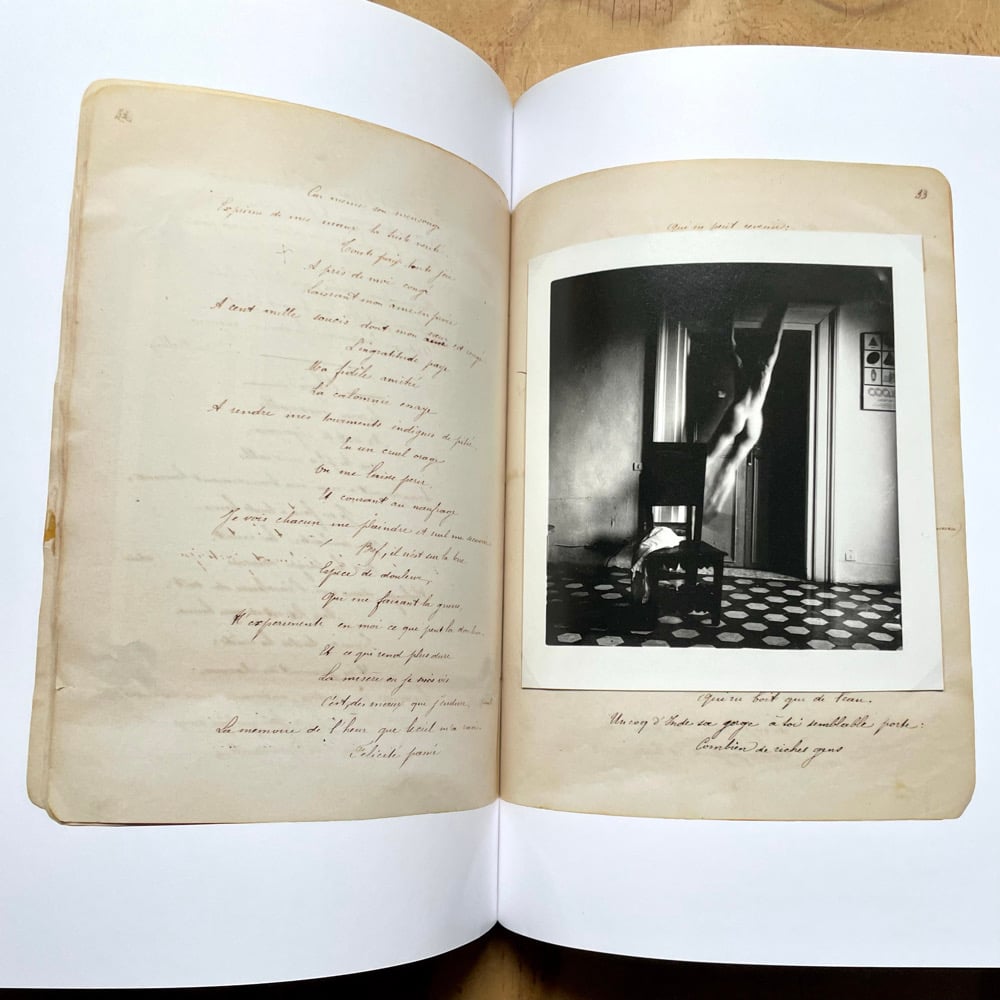 52
Car même son mensonge
Expirer de mes maux la triste verité.
Toute paix, toute joie
A pris de moi congé
Laissant mon ame en proie
A cent mille soucis dont mon ame est rongé
L'ingratitude paye
Ma fidèle amitié
La calomnie essaye
A rendre mes tourments indignes de pitié.
En un cruel orage
On me laisse perir.
Et courant au naufrage
Je vois chacun me plaindre et nul me secourir
Bref, il n'est sur la terre
Espèce de douleur,
Qui me faisant la guerre
N'experimente en moi ce que peut la douleur.
Et ce qui rend plus dure
La misere ou je vis
C'est, des maux que j'endure,
La memoire de l'heur que le ciel m'a ravi.
Felicité passée
53
Qui ne peut revenir:
COQUI
Qui ne boit que de l'eau.
Un coq d'Inde sa gorge à toi semblable porte:
Combien de riches gens